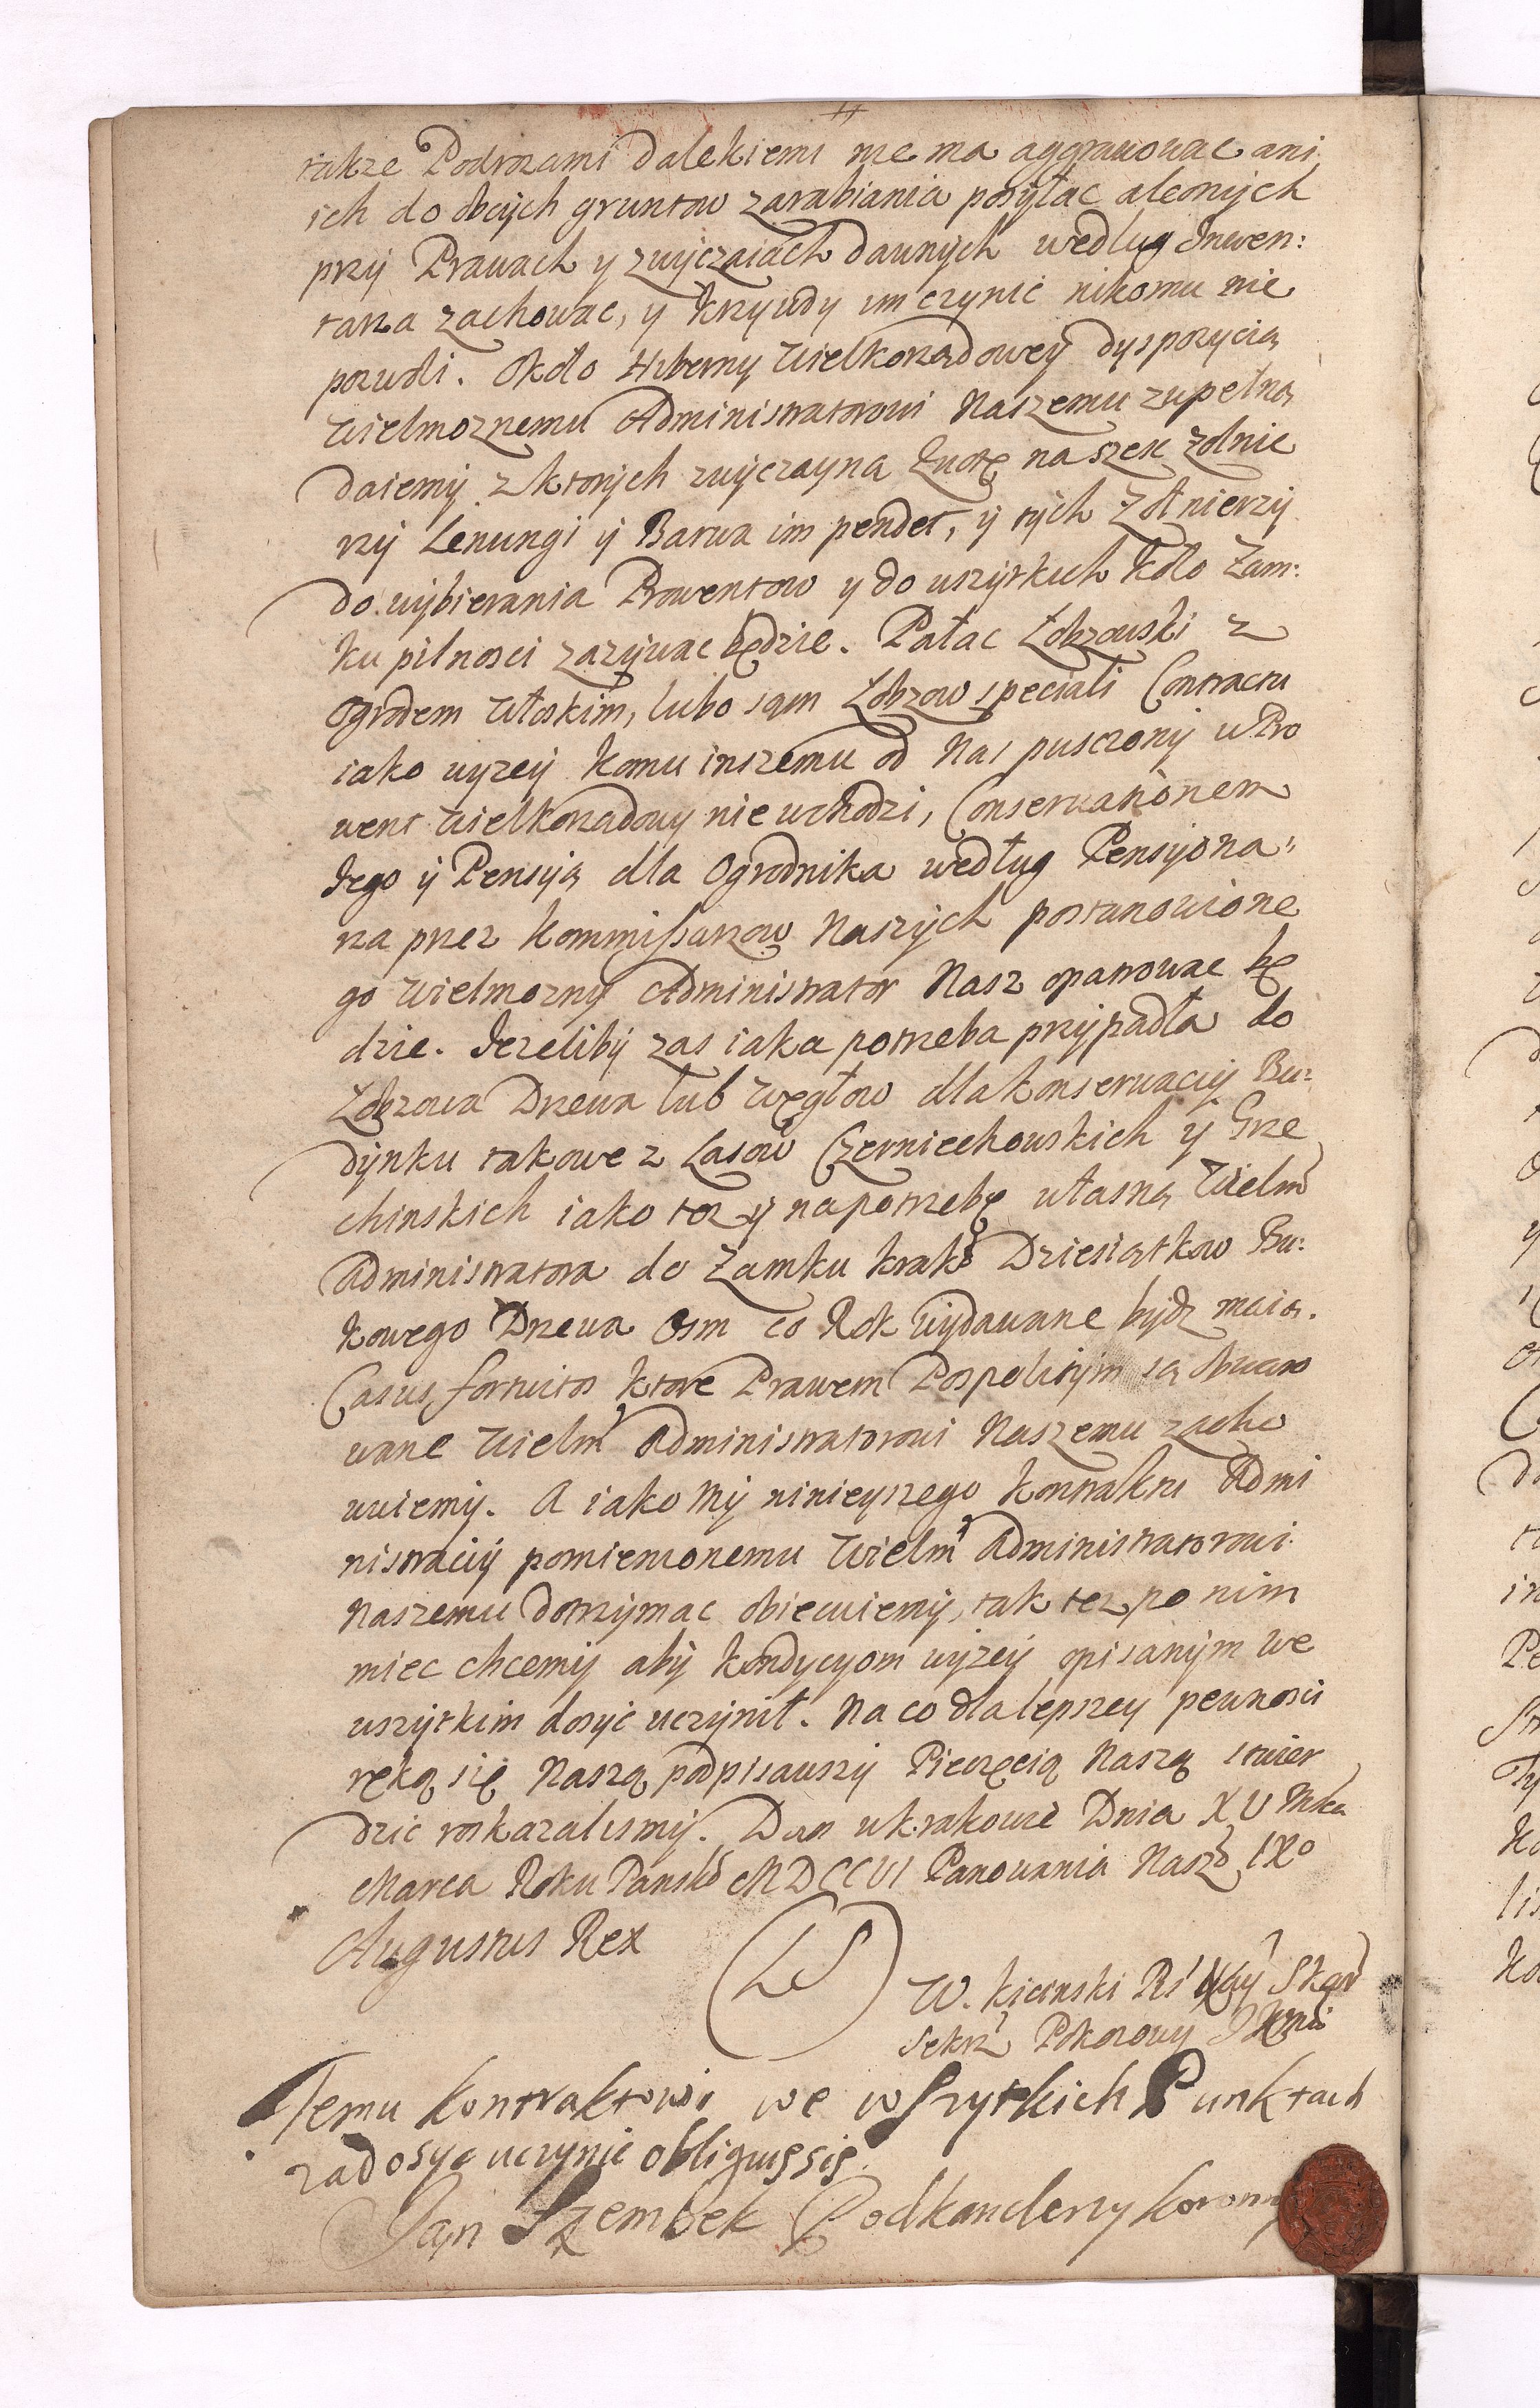 takze Podrozami dalekiemi nie ma aggrawowac ani
ich do obcych gruntow zarabiania posyłac ale onych
przy Prawach y zwyczaiach dawnych według Inwen:
tarza zachowac, y krzywdy im czynić nikomu nie
pozwoli. Około Hiberny Wielkorządowey dyspozycią
Wielmoznemu Administratorowi Naszemu zupełną
daiemy z ktorych zwyczayna kwotę na szesc zolnie
rzy Lenungi y Barwa im pendet, y tych Zołnierzy
do wybierania Prowentow y do wszytkich koło Zam:
ku pilnosci zazywac będzie. Pałac Łobzowski z
Ogrodem Włoskim, lubo sąm Łobzow speciali Contractu
iako wyzey komu inszemu od Nas pusczony w Pro
went Wielkorządowy nie wchodzi, Conservationem
Iego y Pensyą dla Ogrodnika według Pensyona„
rza przez Kommissarzow Naszych postanowione
go Wielmozny Administrator Nasz opatrowac bę
dzie. Jezeliby zas iaka potrzeba przypadła do
Łobzowa Drzewa lub Węgłow dla konserwacyi Bu:
dynku takowe z Lasow Czerniechowskich y Grze
chinskich iako tez y na potrzebę własną Wielm
Administratora do Zamku krakº Dziesiątkow Bu:
kowego Drzewa Osm co Rok wydawane bydz maią.
Casus fortuitos ktore Prawem Pospolitym są obwaro
wane Wielm Administratorowi Naszemu zacho
wuiemy. A iako My ninieyszego kontraktu Admi
nistracyi pomienionemu Wielm Administratorowi
Naszemu dotrzymac obiecuiemy, tak tez po nim
miec chcemy aby kondycyom wyzey opisanym we
wszytkim dosyć uczynił. Na co dla lepszey pewnosci
ręką się Naszą podpisawszy Pieczęcią Naszą stwier
dzic roskazalismy. Dan w krakowie Dnia XV Mca
Marca Roku Panskº MDCCVI Panowania Naszº IXº
Augustus Rex
LS
W. Kicinski
Sekrz Pokoiowy J K Mci
Temu kontraktowi we wszytkich Punktach
zadosyc uczynic obliguię się.
Jan Szembek Podkanclerzy koronny